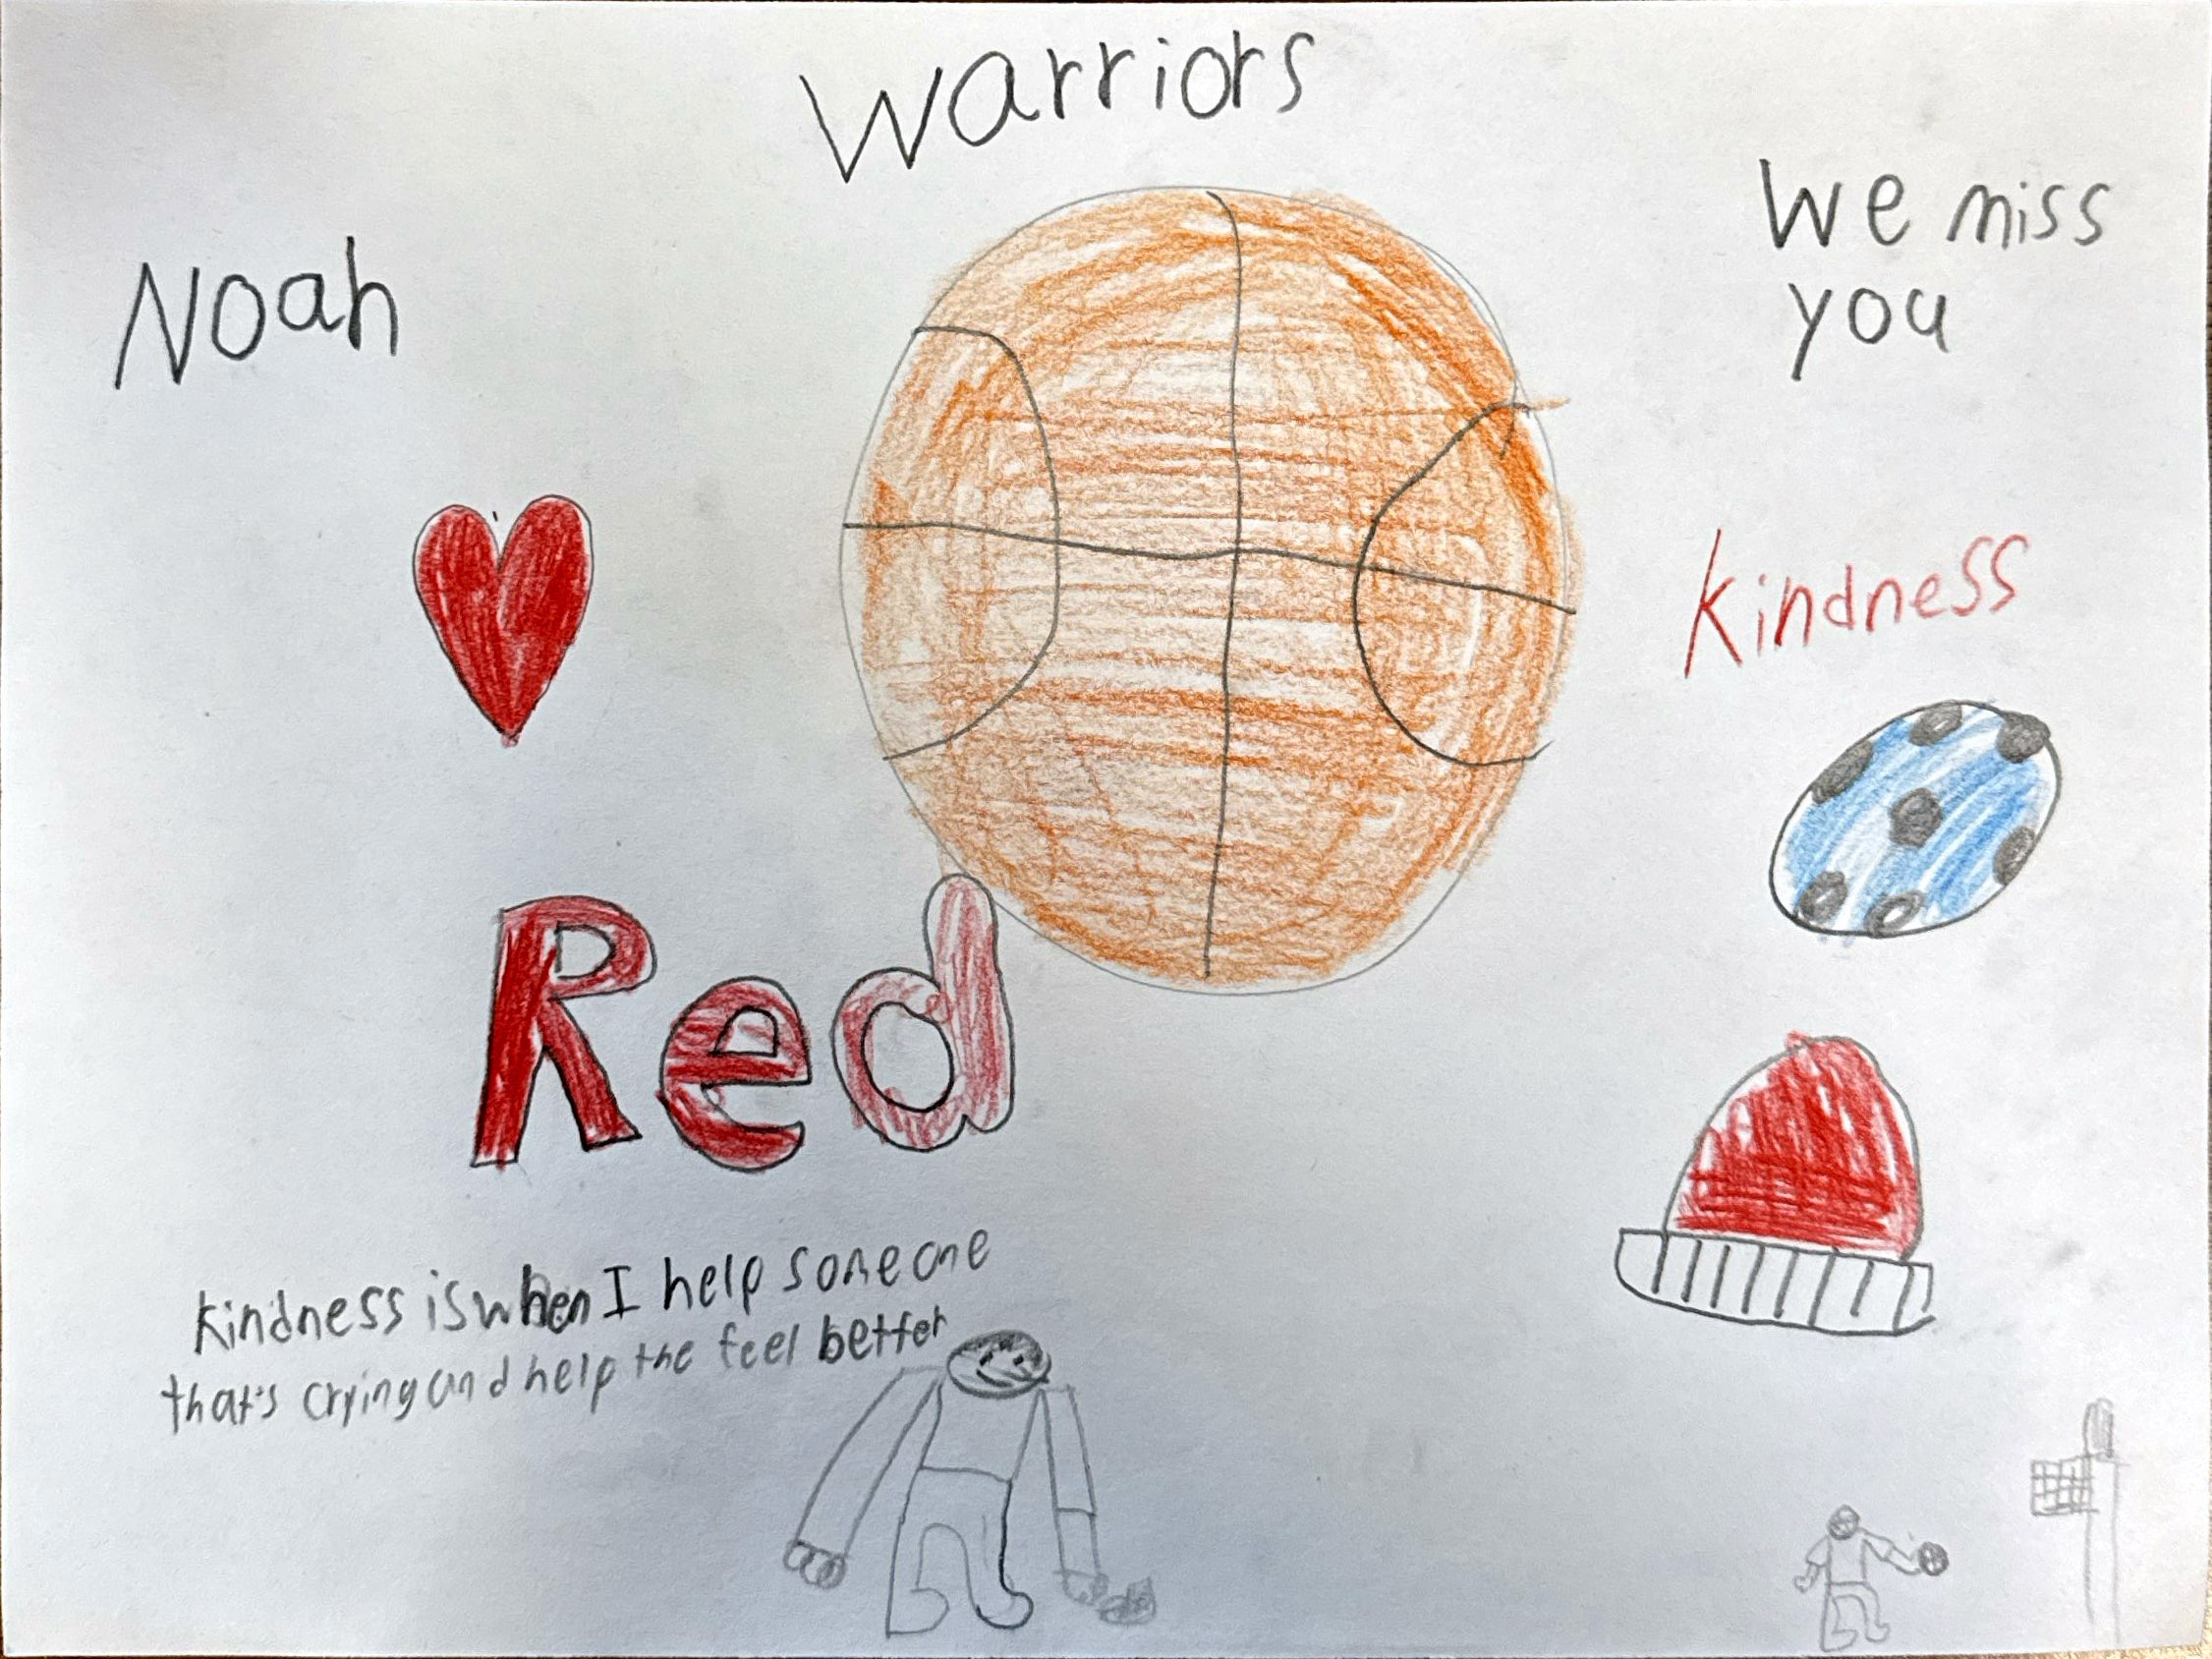 Warriors
Noah
We miss
you
Kindness
Red
Kindness is when I help someone
that's crying and help the feel better